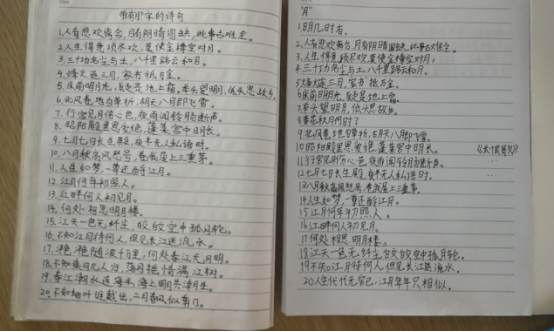 带有"月"字的诗句
1.人有悲欢离合,月有阴晴圆缺,此事古难全。
2.人生得意须尽欢,莫使金樽空对月。
3.三十功名尘与土,八千里路云和月。
4.烽火连三月,家书抵万金。
5.床前明月光,疑是地上霜,举头望明月,低头思故乡。
6.北风卷地白草折,胡天八月即飞雪。
7.行宫见月伤心色,夜雨闻铃肠断声。
8.昭阳殿里恩爱绝,蓬莱宫中日月长。
9.七月七日长生殿,夜半无人私语时。
10.八月秋高风怒号,卷我屋上三重茅。
11.人生如梦,一尊还酹江月。
12.江月何年初照人。
13.江畔何人初见月。
14.何处相思明月楼。
15.江天一色无纤尘,皎皎空中孤月轮。
16.不知江月待何人,但见长江送流水。
17.滟滟随波千万里,何处春江无月明。
18.不知乘月几人归,落月摇情满江树。
19.春江潮水连海平,海上明月共潮生。
20.不知细叶谁裁出,二月春风似剪刀。
"月"
1.明月几时有。
2.人有悲欢离合,月有阴晴圆缺,此事古难全。
3.人生得意须尽欢,莫使金樽空对月。
4.三十功名尘与土,八千里路云和月。
5.烽火连三月,家书抵万金。
6.床前明月光,疑是地上霜。
7.举头望明月,低头思故乡。
8.春花秋月何时了
9.北风卷地白草折,胡天八月即飞雪。
10.昭阳殿里恩爱绝,蓬莱宫中日月长。《长恨歌》
11.行宫见月伤心色,夜雨闻铃肠断声。
12.七月七日长生殿,夜半无人私语时。
13.八月秋高风怒号,卷我屋上三重茅。
14.人生如梦,一尊还酹江月。
15.江月何年初照人。
16.江畔何人初见月。
17.何处相思明月楼。
18.江天一色无纤尘,皎皎空中孤月轮。
19.不知江月待何人,但见长江送流水。
20.人生代代无穷已,江月年年只相似。